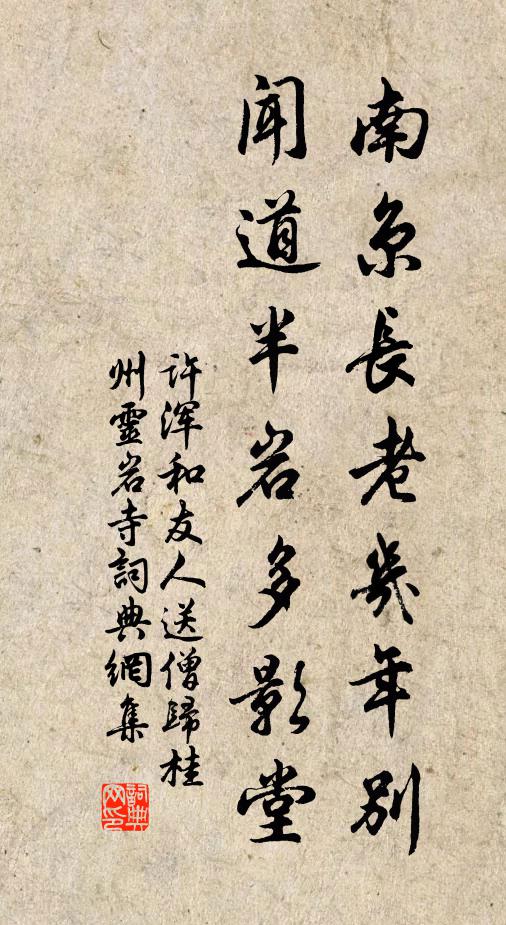 南京長老幾年別
聞道半岩多影堂
許渾和友人送僧歸桂
州靈岩寺詞典網集
詞典
网印